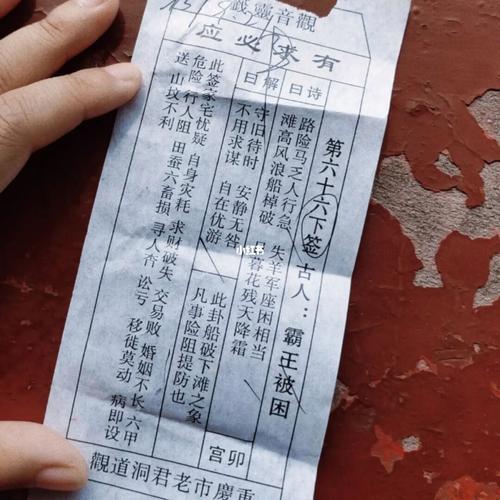 觀音靈籤
有求必应
第六十六下签 古人：霸王被困
诗曰
路险马乏人行急 失羊军座困相当
滩高风浪船棹破 花残天降霜
解曰
守旧待时 安静无咎
不用求谋 自在优游
此卦船破下滩之象
凡事险阻提防也
卯宫
此签家宅忧疑 自身灾耗 求财破失 交易败 婚姻不长 六甲
危险 行人阻 田蚕六畜损 寻人杳 讼亏 移徙莫动 病即设
送 山坟不利
重慶市老君洞道觀
小红书